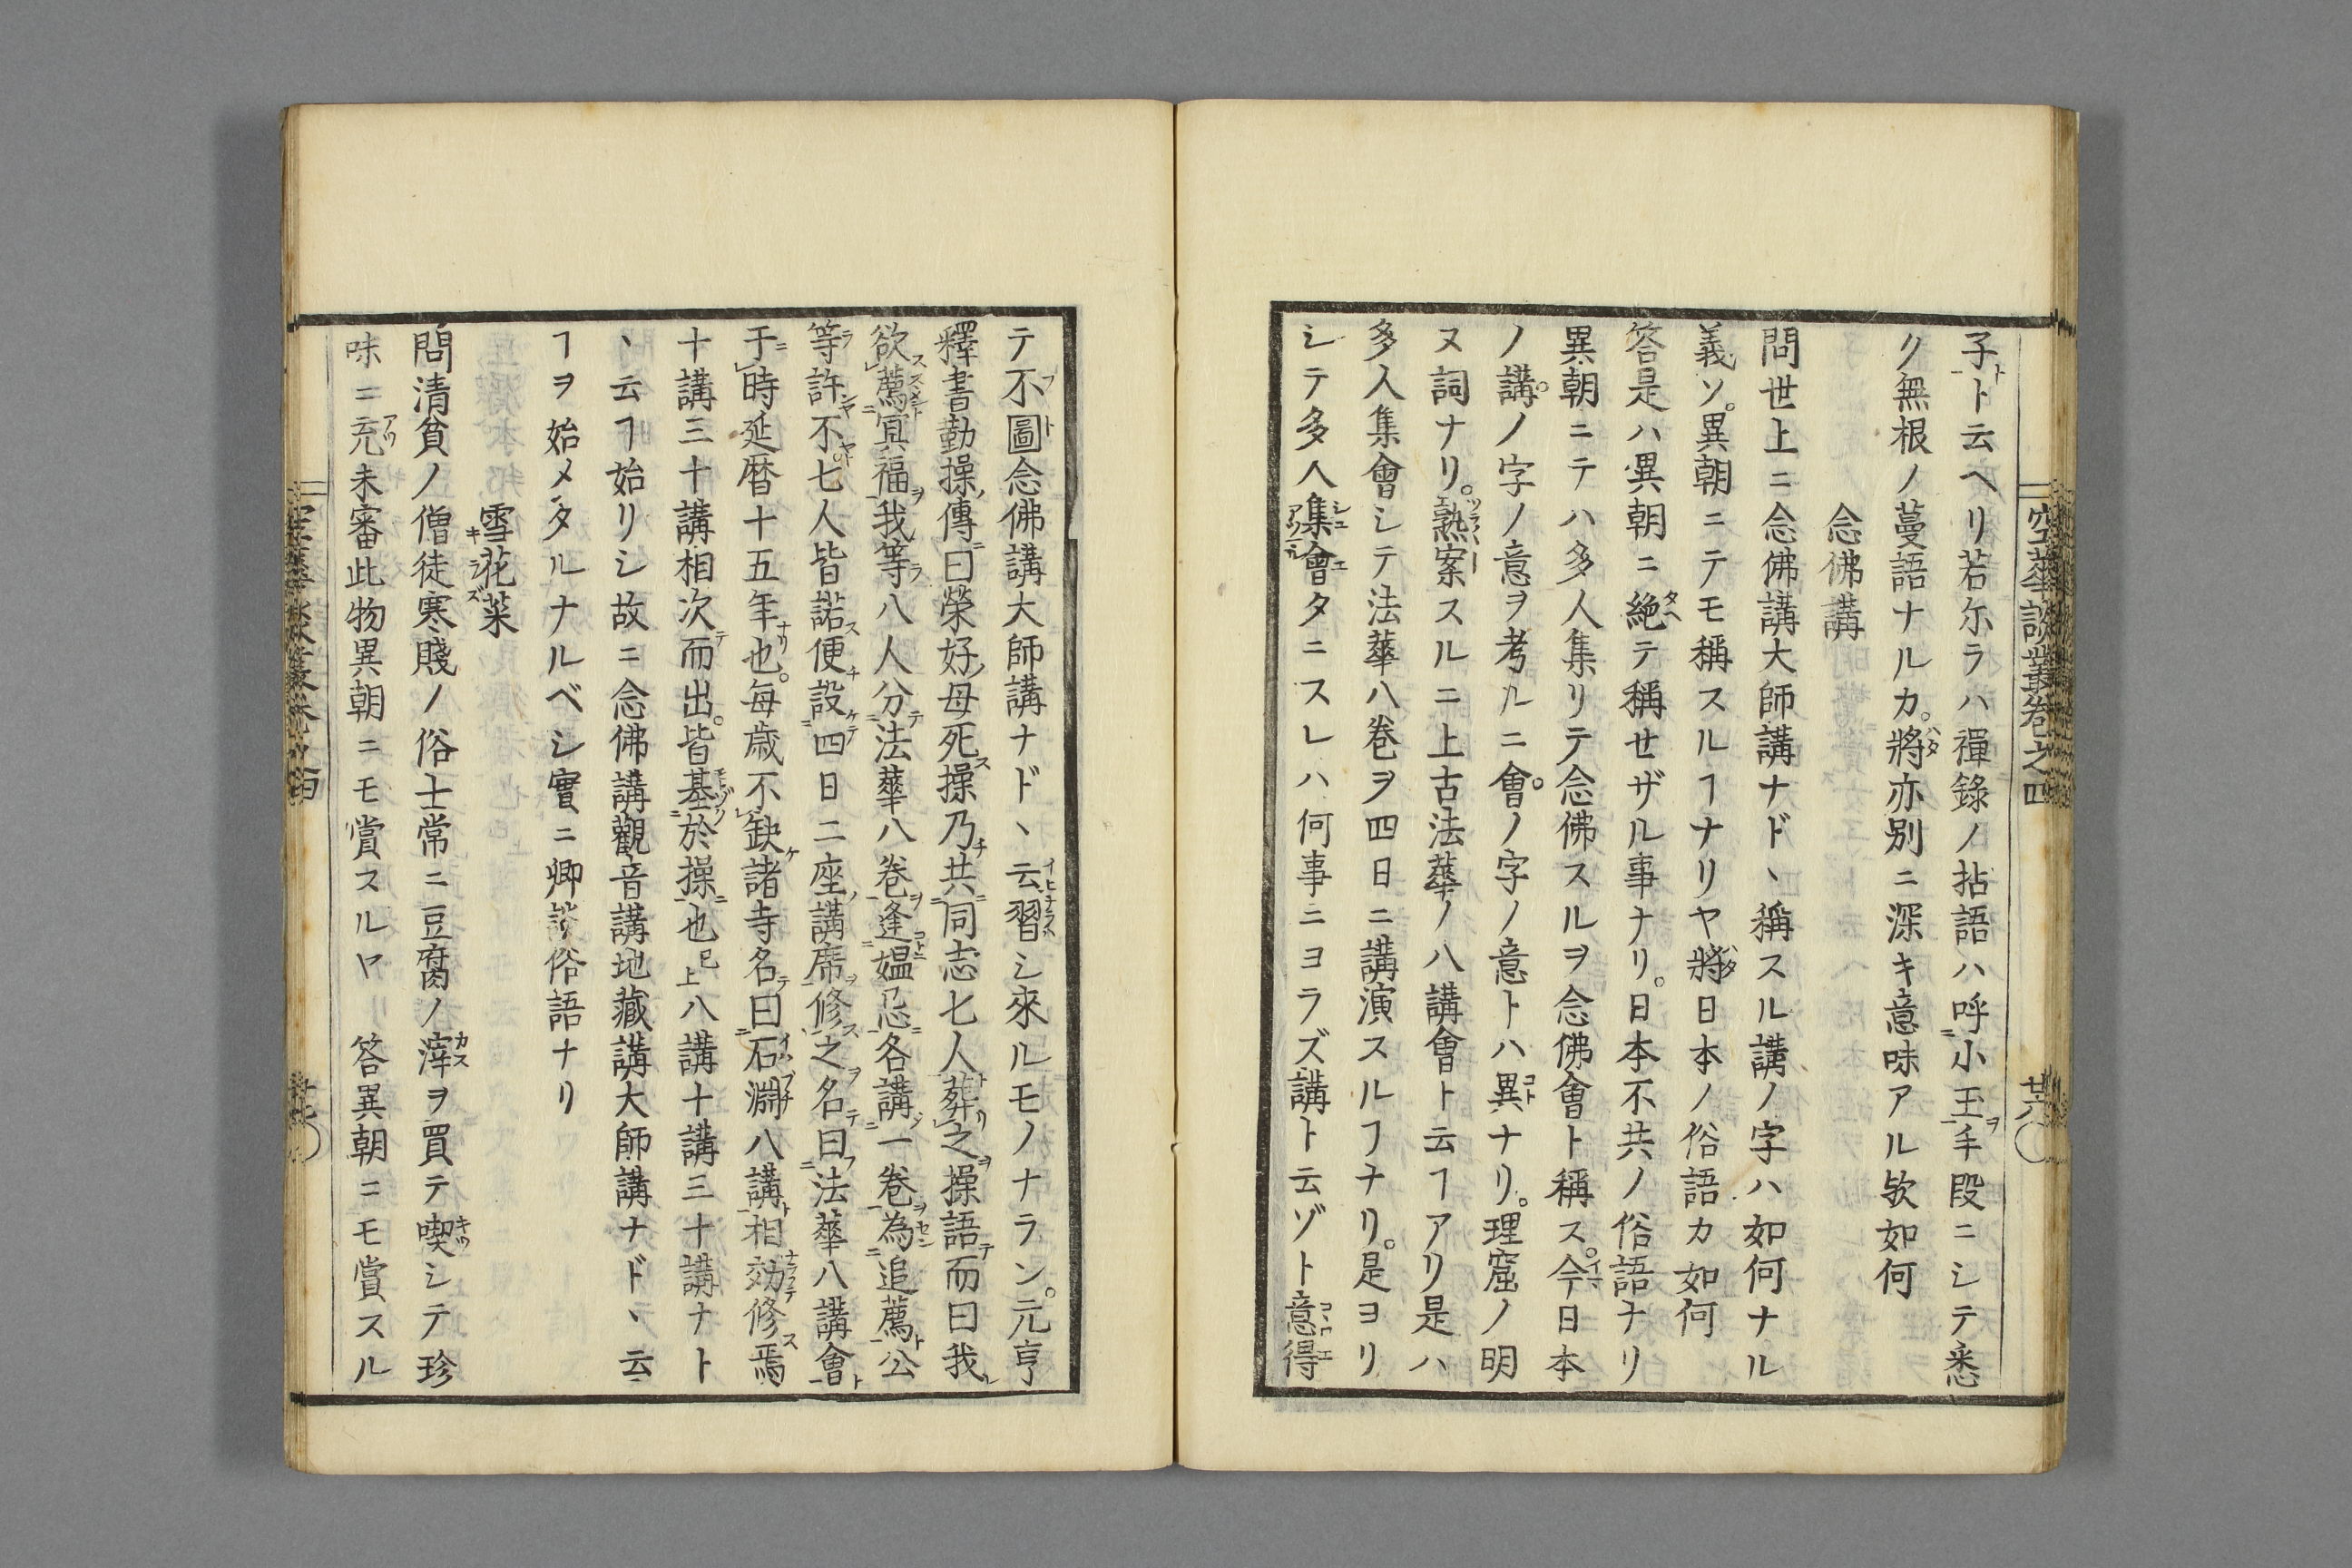 空華談叢卷之四 廿六
子ト云ヘリ若尓ラハ禪錄ノ拈語ハ呼小玉手段ニシテ悉
ク無根ノ蔓語ナルカ。將亦別ニ深キ意味アル欤如何
念佛講
問世上ニ念佛講大師講ナドヽ稱スル講ノ字ハ如何ナル
義ソ。異朝ニテモ稱スルヿナリヤ將日本ノ俗語カ如何
答是ハ異朝ニ絶テ稱せザル事ナリ。日本不共ノ俗語ナリ
異朝ニテハ多人集リテ念佛スルヲ念佛會ト稱ス。今日本
ノ講。ノ字ノ意ヲ考ルニ會。ノ字ノ意トハ異ナリ。理窟ノ明
ヌ詞ナリ。熟案スルニ上古法華ノ八講會ト云ヿアリ是ハ
多人集會シテ法華八卷ヲ四日ニ講演スルヿナリ。是ヨリ
シテ多人集會タニスレハ何事ニヨラズ講ト云ゾト意得
テ不圖念佛講大師講ナドヽ云習シ來ルモノナラン。元亨
釋書勤操傳曰榮好母死操乃共同志七人葬之操語而曰我
欲薦冥福我等八人分法華八卷逢媼忌各講一卷為追薦公
等許不七人皆諾便設四日二座講席修之名曰法華八講會
于時延暦十五年也。每歳不缺諸寺名曰石淵八講相効修焉
十講三十講相次而出。皆基於操也已上八講十講三十講ナト
ヽ云ヿ始リシ故ニ念佛講觀音講地藏講大師講ナドヽ云
ヿヲ始メタルナルベシ實ニ卿談俗語ナリ
雪花菜
問清貧ノ僧徒寒賤ノ俗士常ニ豆腐ノ滓ヲ買テ喫シテ珍
味ニ充未審此物異朝ニモ賞スルヤ 答異朝ニモ賞スル